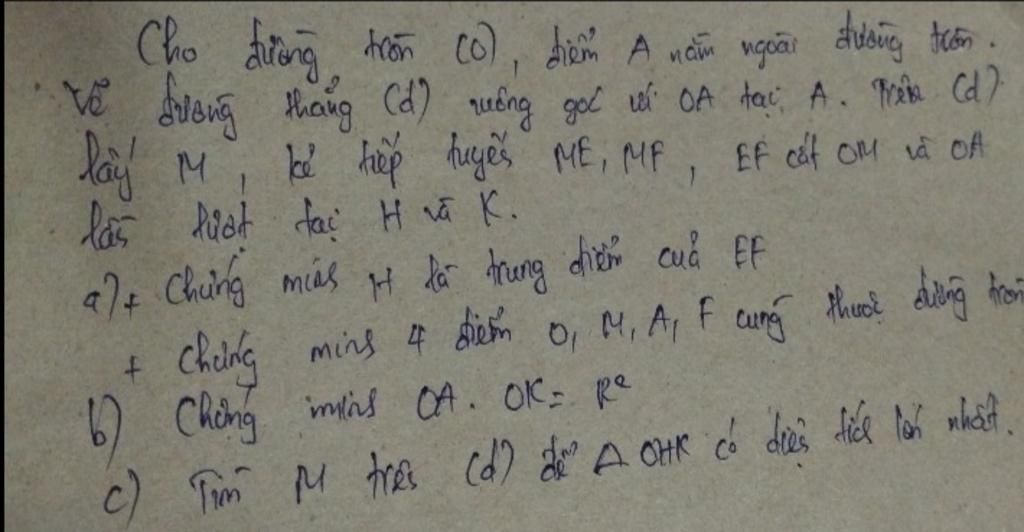 Cho đường tròn (O), điểm A nằm ngoài đường tròn.
Vẽ đường thẳng (d) vuông góc với OA tại A. Trên (d)
lấy M, kẻ tiếp tuyến ME, MF, EF cắt OM và OA
lần lượt tại H và K.
a) + Chứng minh H là trung điểm của EF
+ Chứng minh 4 điểm O, M, A, F cùng thuộc đường tròn
b) Chứng minh OA. OK = R²
c) Tìm M trên (d) để Δ OHK có diện tích lớn nhất.